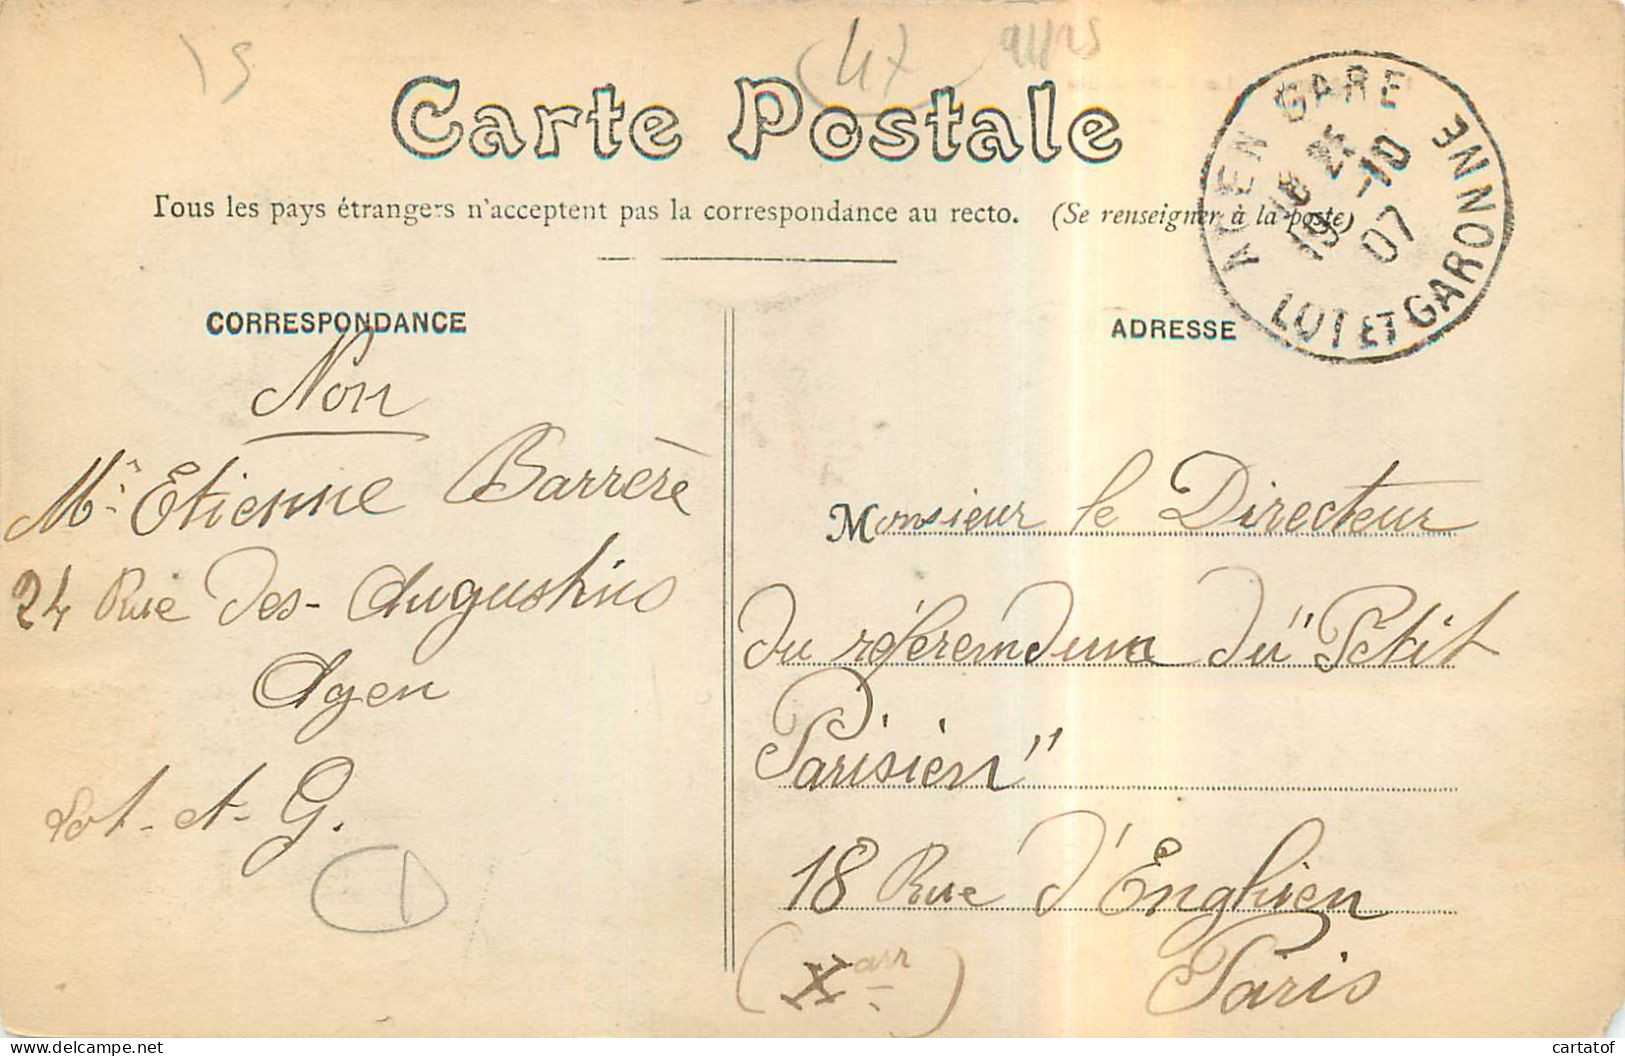 47
Carte Postale
Tous les pays étrangers n'acceptent pas la correspondance au recto. (Se renseigner à la poste)
AGEN GARE
-10
07
LOT ET GARONNE
CORRESPONDANCE
Non
Mr. Etienne Barrère
24 Rue des Augustins
Agen
Lot-et-G.
ADRESSE
Monsieur le Directeur
du référendum du "Petit
Parisien"
18 Rue d'Enghien
(X arr) Paris
cartatof